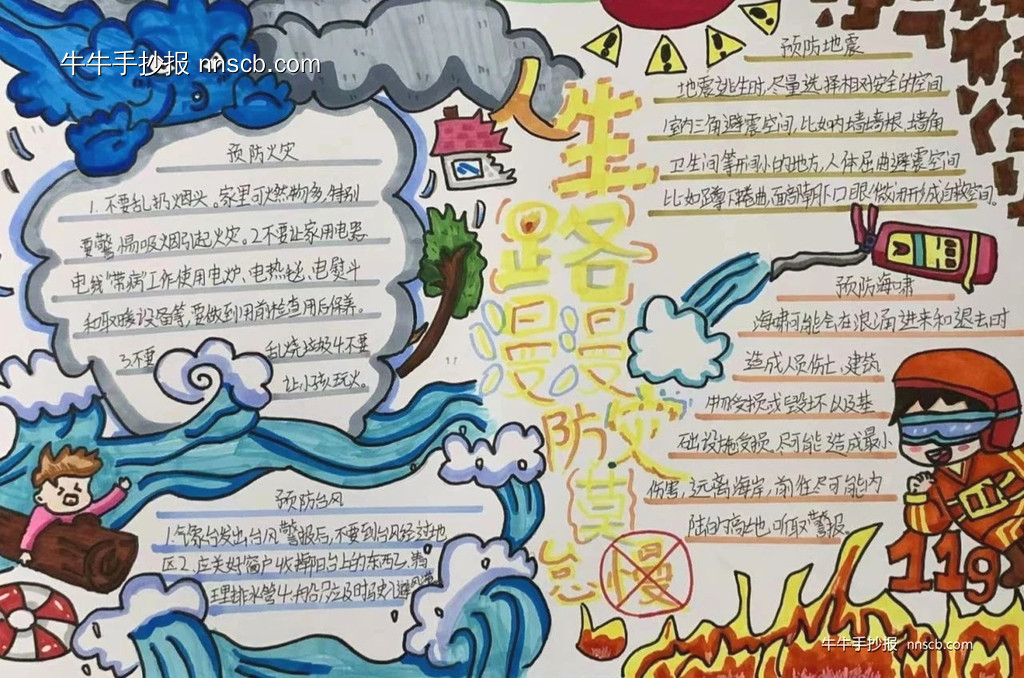 牛牛手抄报 nnscb.com
预防火灾
1.不要乱扔烟头。家里可燃物多,特别
要警惕吸烟引起火灾。2.不要让家用电器
电线"带病"工作使用电炉、电热毯、电熨斗
和取暖设备等,要做到用前检查用后保养。
3.不要 乱烧垃圾4.不要
让小孩玩火。
预防台风
1.气象台发出台风警报后,不要到台风经过地
区2.应关好窗户收掉阳台上的东西3.清
理排水管4.
人生
路
漫漫
防灾
莫
怠慢
预防地震
地震逃生时,尽量选择相对安全的空间
室内三角避震空间,比如内墙墙根、墙角
卫生间等开间小的地方,人体屈曲避震空间
比如蹲下蜷曲、面部朝下口眼微闭形成自救空间。
预防海啸
海啸可能会在浪涌进来和退去时
造成人员伤亡、建筑
物受损或毁坏以及基
础设施受损,尽可能造成最小
伤害,远离海岸,前往尽可能内
陆的高地,听取警报。
119
牛牛手抄报 nnscb.com